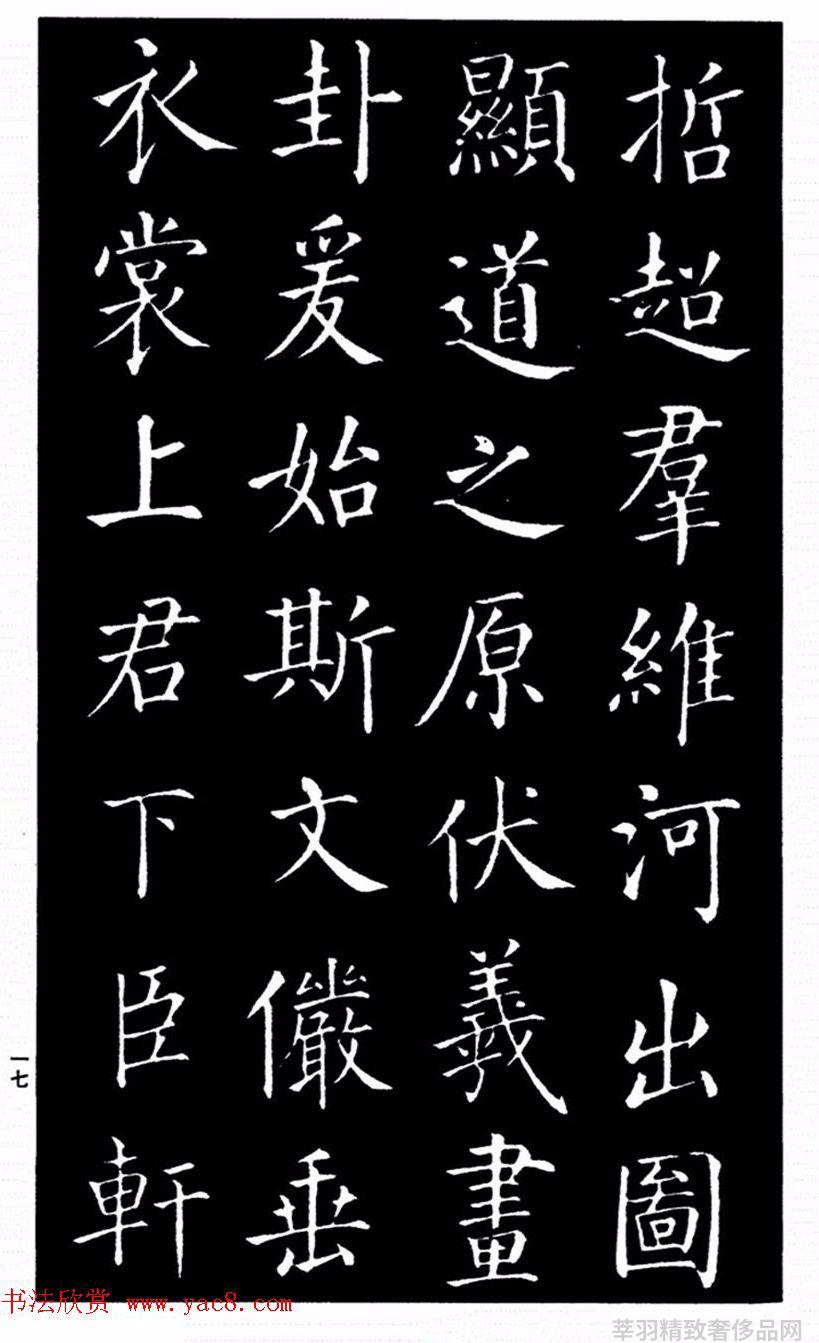 哲超羣維河出圖
顯道之原伏羲畫
卦爰始斯文儼垂
衣裳上君下臣軒
一七
书法欣赏 www.yac8.com
莘羽精致奢侈品网